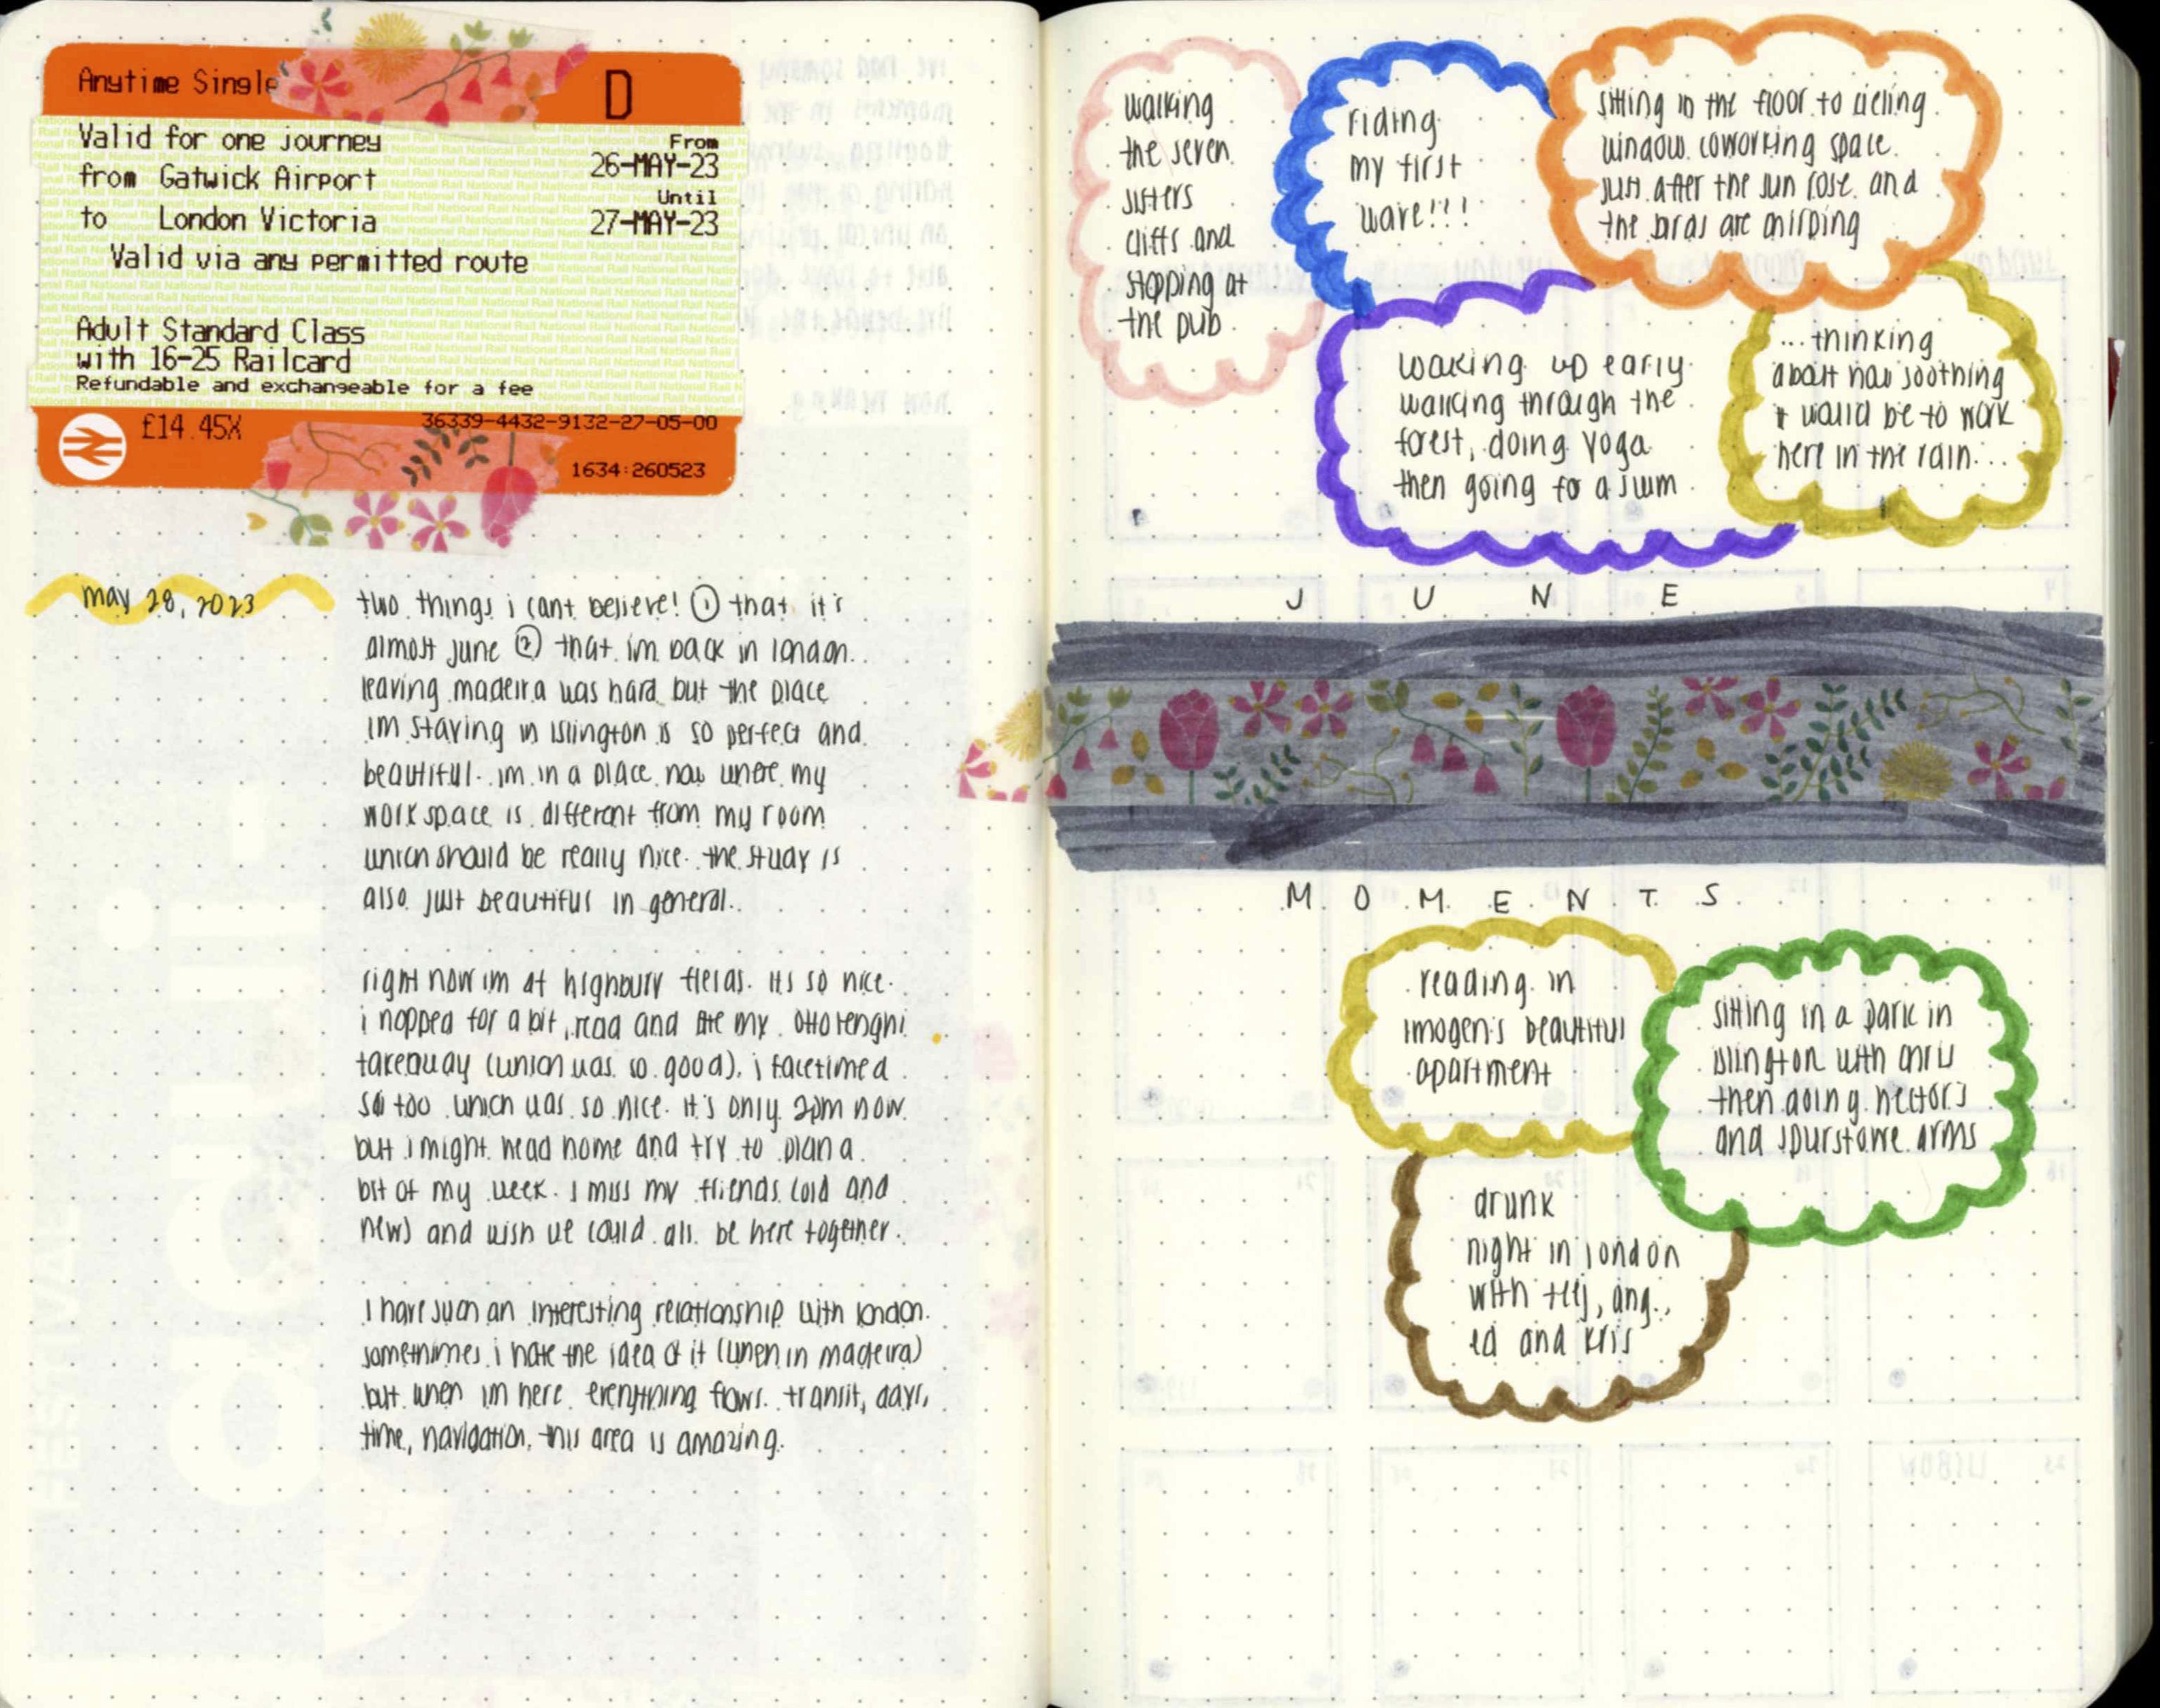 Anytime Single
D
Valid for one journey
from Gatwick Airport
to London Victoria
Valid via any permitted route
From
26-MAY-23
Until
27-MAY-23
Adult Standard Class
with 16-25 Railcard
Refundable and exchangeable for a fee
£14.45X
36339-4432-9132-27-05-00
1634:260523
may 28, 2023
two things i cant believe! ① that it's
almost june ② that im back in london.
leaving madeira was hard but the place
im staying in islington is so perfect and
beautiful. im in a place now where my
workspace is different from my room
which should be really nice. the study is
also just beautiful in general.
right now im at highbury fields. its so nice.
i napped for a bit, read and ate my ottolenghi
takeaway (which was so good). i facetimed
too which was so nice. it's only 2pm now
but i might head home and try to plan a
bit of my week. I miss my friends (old and
new) and wish we could all be here together.
I have such an interesting relationship with london.
somethimes i hate the idea of it (when in madeira)
but when im here everything flows. transit, days,
time, navigation. this area is amazing.
walking
the seven
sisters
cliffs and
stopping at
the pub
riding
my first
wave!!!
sitting in the floor to cieling
window coworking space
just after the sun rose and
the birds are chirping
waking up early
walking through the
forest, doing yoga
then going for a swim
...thinking
about how soothing
it would be to work
here in the rain...
JUNE
MOMENTS
reading in
imogen's beautiful
apartment
sitting in a park in
islington with chris
then doing hector's
and spurstowe arms
drunk
night in london
with teej, ang.,
ed and kris